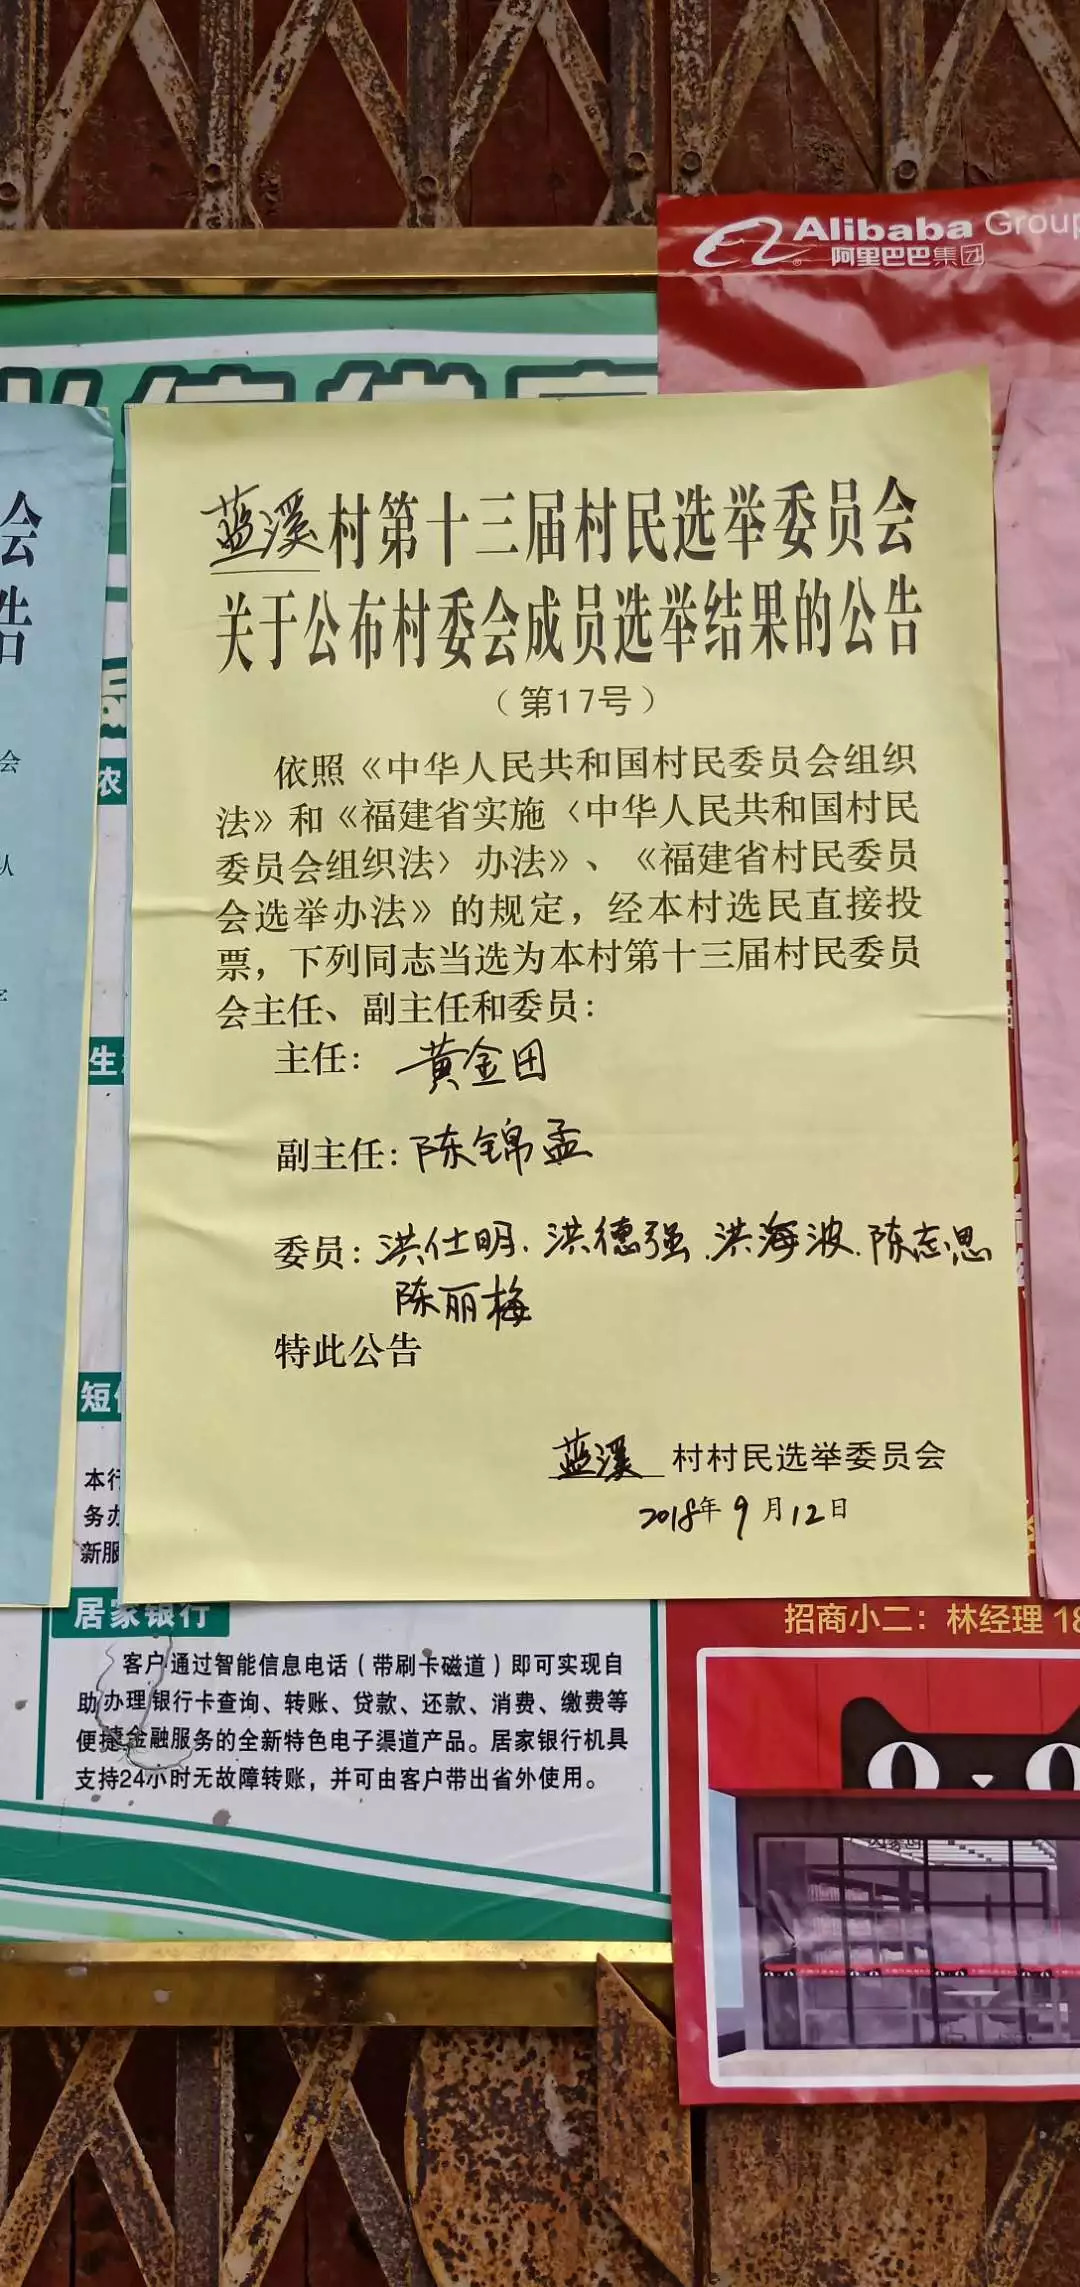 Alibaba Group
阿里巴巴集团
会
告
蓝溪村第十三届村民选举委员会
关于公布村委会成员选举结果的公告
（第17号）
依照《中华人民共和国村民委员会组织
法》和《福建省实施〈中华人民共和国村民
委员会组织法〉办法》、《福建省村民委员
会选举办法》的规定，经本村选民直接投
票，下列同志当选为本村第十三届村民委员
会主任、副主任和委员：
主任：黄金团
副主任：陈锦孟
委员：洪仕明.洪德强.洪海波.陈志思
陈丽梅
特此公告
蓝溪 村村民选举委员会
2018年9月12日
会
人
农
生
短
本行
务办
新服
居家银行
客户通过智能信息电话（带刷卡磁道）即可实现自
助办理银行卡查询、转账、贷款、还款、消费、缴费等
便捷金融服务的全新特色电子渠道产品。居家银行机具
支持24小时无故障转账，并可由客户带出省外使用。
招商小二：林经理 18